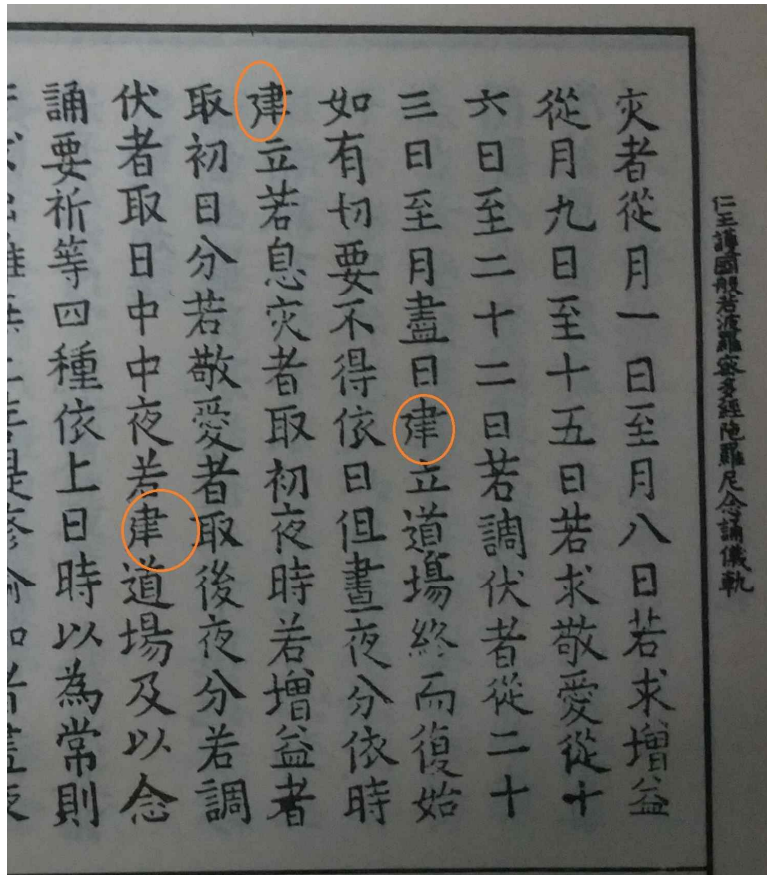 仁王護國般若波羅蜜多經陀羅尼念誦儀軌
灾者從月一日至月八日若求增益
從月九日至十五日若求敬愛從十
六日至二十二日若調伏者從二十
三日至月盡日建立道塲終而復始
如有切要不得依日但晝夜分依時
建立若息灾者取初夜時若增益者
取初日分若敬愛者取後夜分若調
伏者取日中中夜若建道場及以念
誦要祈等四種依上日時以為常則